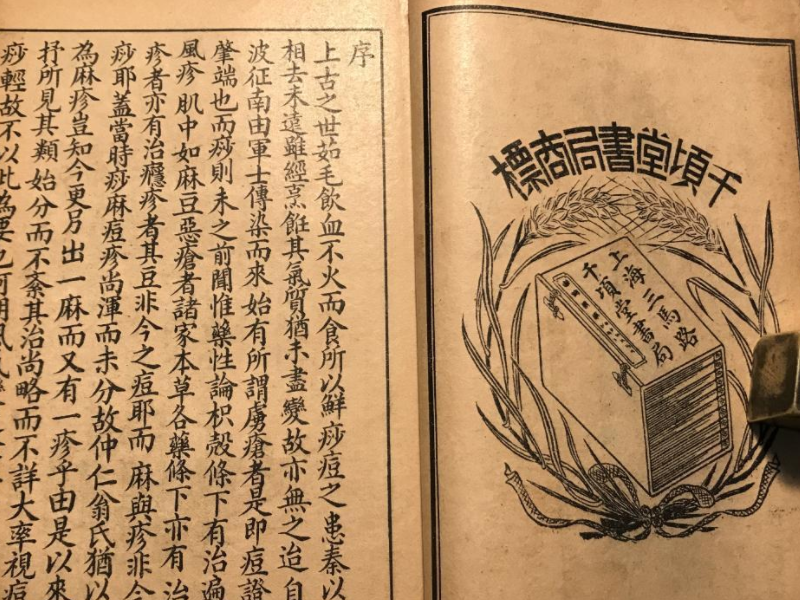 千頃堂書局商標
上海三馬路
千頃堂書局
序
上古之世茹毛飲血不火而食所以鮮痧痘之患秦以
相去未遠雖經烹飪其氣質猶未盡變故亦無之迨自
波征南由軍士傳染而來始有所謂虜瘡者是即痘證
肇端也而痧則未之前聞惟藥性論枳殼條下有治遍
風疹肌中如麻豆惡瘡者諸家本草各藥條下亦有治
疹者亦有治癮疹者其豆非今之痘耶而麻與疹非今
痧耶蓋當時痧麻痘疹尚渾而未分故仲仁翁氏猶以
為麻疹豈知今更另出一麻而又有一疹乎由是以來
抒所見其類始分而不紊其治尚略而不詳大率視痘
痧輕故不以此為要也可